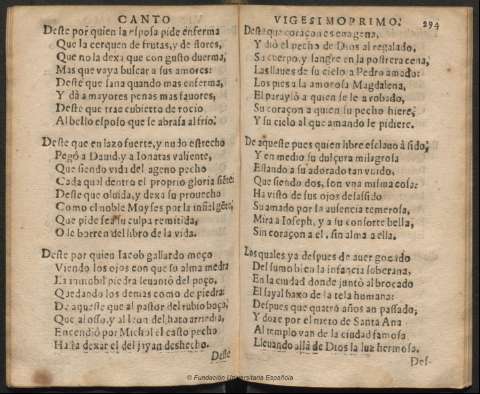 CANTO
Deste por quien la esposa pide enferma
Que la cerquen de frutas, y de flores,
Que no la dexa que con gusto duerma,
Mas que vaya buscar a sus amores:
Deste que sana quando mas enferma,
Y dà a mayores penas mas fauores,
Deste que trae cubierto de rocio
Al bello esposo que se abrasa al frio.
Deste que en lazo fuerte, y nudo estrecho
Pegò a Dauid, y a Ionatas valiente,
Que siendo vida del ageno pecho
Cada qual dentro el proprio gloria siente
Deste que olvida, y dexa su prouecho
Como el noble Moyses por la insial gẽte,
Que pide sea su culpa remitida,
O le borren del libro de la vida.
Deste por quien Iacob gallardo moço
Viendo los ojos con que su alma medra
La inmobil piedra leuantò del poço,
Quedando los demas como de piedra:
De aqueste que al pastor del rubio boço,
Que al osso, y al leon del hato arriedra,
Encendiò por Michol el casto pecho
Hasta dexar el del jayan deshecho.
Deste
VIGESIMOPRIMO. 294
Deste que coraçones enagena,
Y diò el pecho de Dios al regalado,
Su cuerpo, y sangre en la postrera cena,
Las llaues de su cielo a Pedro amado:
Los pies a la amorosa Magdalena,
El parayso a quien se le a robado,
Su coraçon a quien su pecho hiere,
Y su cielo al que amando le pidiere.
De aqueste pues quien libre esclauo à sido,
Y en medio su dulçura milagrosa
Estando a su adorado tan vnido,
Que siendo dos, son vna misma cosa:
Ha visto de sus ojos del
Su amado por la ausencia temerosa,
Mira a Ioseph, y a su conforte bella,
Sin coraçon a el, sin alma a ella.
Los quales ya despues de auer gozado
Del sumo bien la infancia soberana,
En la ciudad donde juntò al brocado
El sayal baxo de la tela humana:
Despues que quatro años an passado,
Y doze por el nieto de Santa Ana
Al templo van de la ciudad famosa
Lleuando allà de Dios la luz hermosa.
Des-
© Fundación Universitaria Española